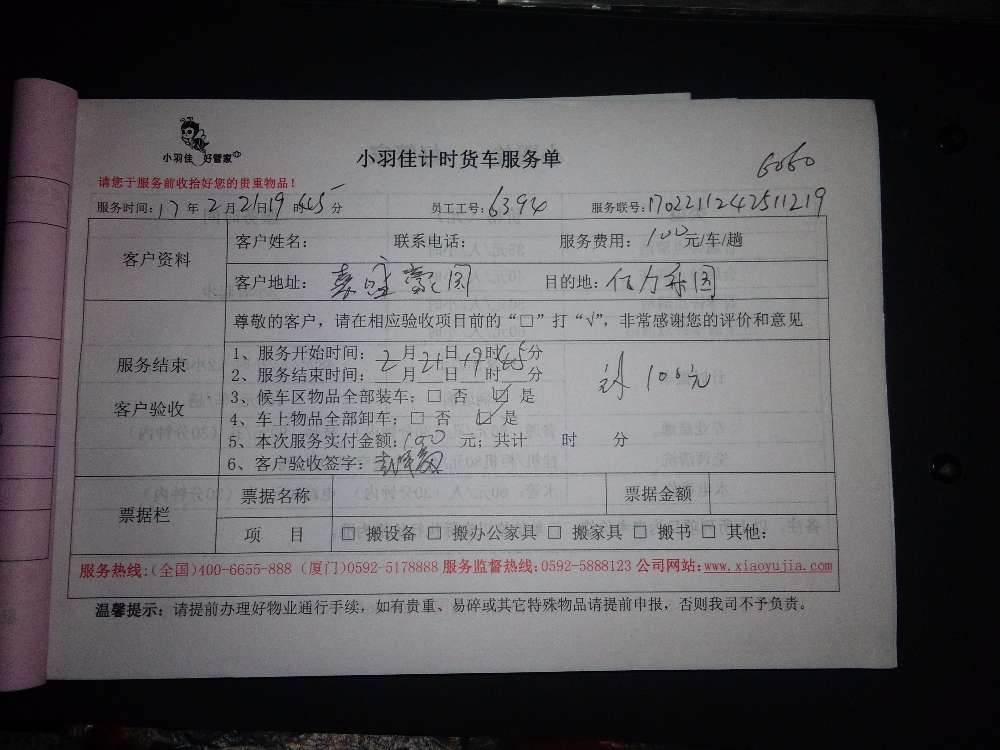 小羽佳 好管家
小羽佳计时货车服务单
6060
请您于服务前收拾好您的贵重物品！
服务时间：17年2月21日19时45分 员工工号：6394 服务联号：1702211242511219
客户资料
客户姓名： 联系电话： 服务费用：100元/车/趟
客户地址：嘉盛豪园 目的地：
尊敬的客户，请在相应验收项目前的“□”打“√”，非常感谢您的评价和意见
服务结束
客户验收
1、服务开始时间：2月21日19时45分
2、服务结束时间：___月___日___时___分
3、候车区物品全部装车：□ 否 ☑ 是
4、车上物品全部卸车：□ 否 ☑ 是
5、本次服务实付金额：100元；共计 时 分
6、客户验收签字：
计100元
票据栏
票据名称 票据金额
项 目 □ 搬设备 □ 搬办公家具 □ 搬家具 □ 搬书 □ 其他：
服务热线：(全国)400-6655-888 (厦门)0592-5178888 服务监督热线：0592-5888123 公司网站：www.xiaoyujia.com
温馨提示：请提前办理好物业通行手续，如有贵重、易碎或其它特殊物品请提前申报，否则我司不予负责。